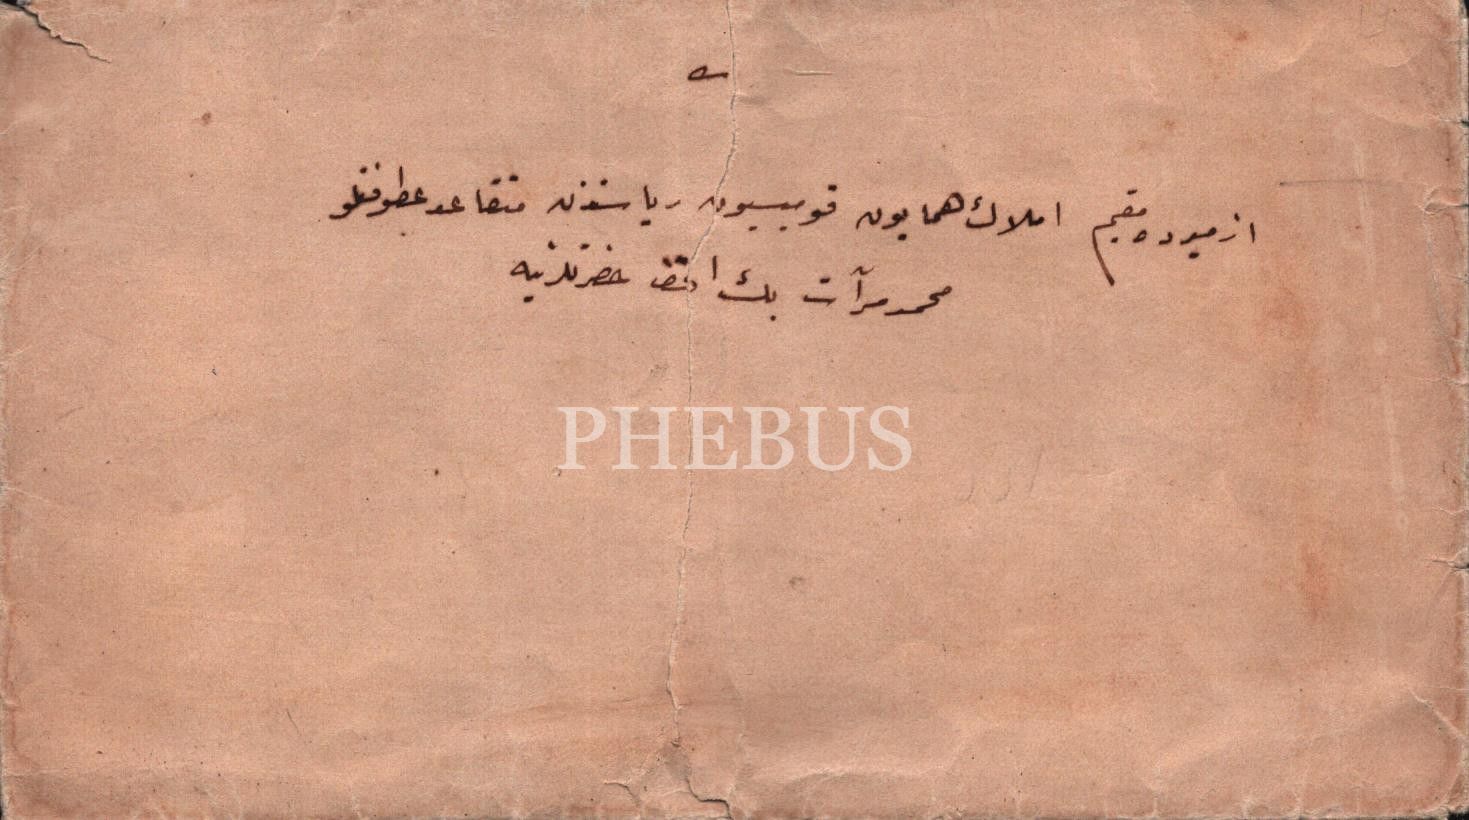 ازمیرده مقیم املاك همایون قومیسیون ریاستندن متقاعد عطوفتلو
محمد مرآت بك افندی حضرتلرینه
PHEBUS